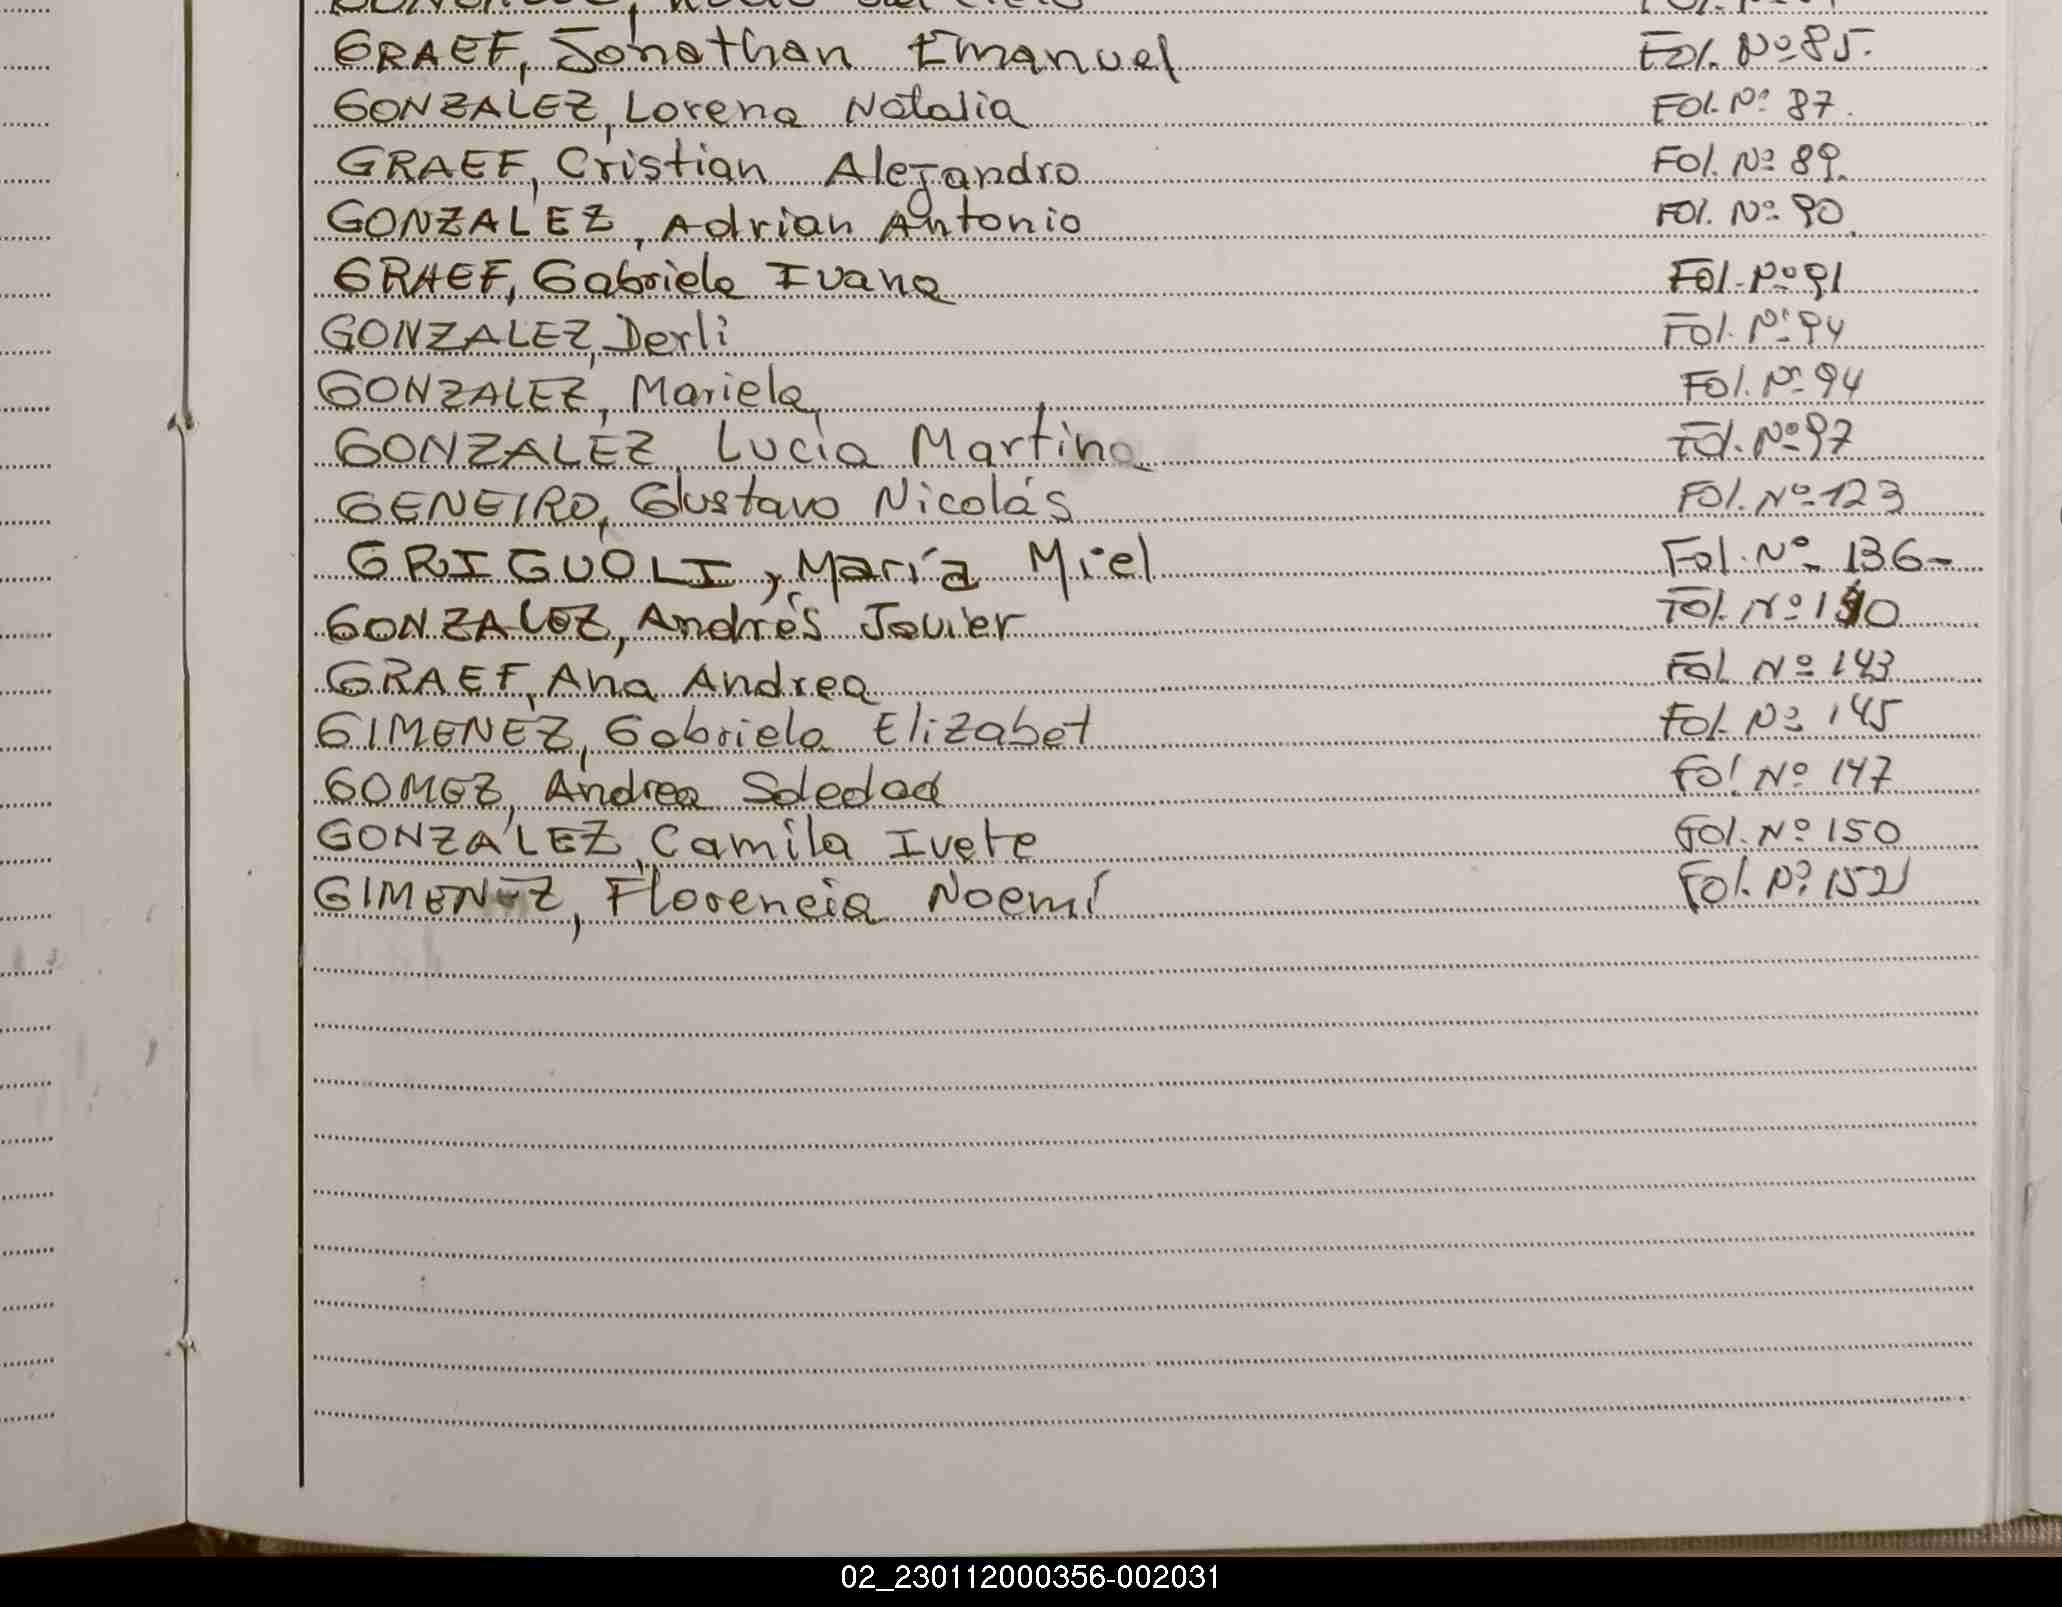 GRAEF, Jonathan Emanuel Fol. Nº 85.
GONZALEZ, Lorena Natalia Fol. Nº 87.
GRAEF, Cristian Alejandro Fol. Nº 89.
GONZALEZ, Adrian Antonio Fol. Nº 90
GRAEF, Gabriela Ivana Fol. Nº 91
GONZALEZ, Derli Fol. Nº 94
GONZALEZ, Mariela Fol. Nº 94
GONZALEZ, Lucia Martina Fol. Nº 97
GENEIRO, Gustavo Nicolás Fol. Nº 123
GRIGUOLI, María Miel Fol. Nº 136-
GONZALEZ, Andrés Javier Fol. Nº
GRAEF, Ana Andrea Fol Nº 143
GIMENEZ, Gabriela Elizabet Fol. Nº 145
GOMEZ, Andrea Soledad Fol Nº 147
GONZALEZ, Camila Ivete Fol. Nº 150
GIMENEZ, Florencia Noemí Fol. Nº 152
02_230112000356-002031